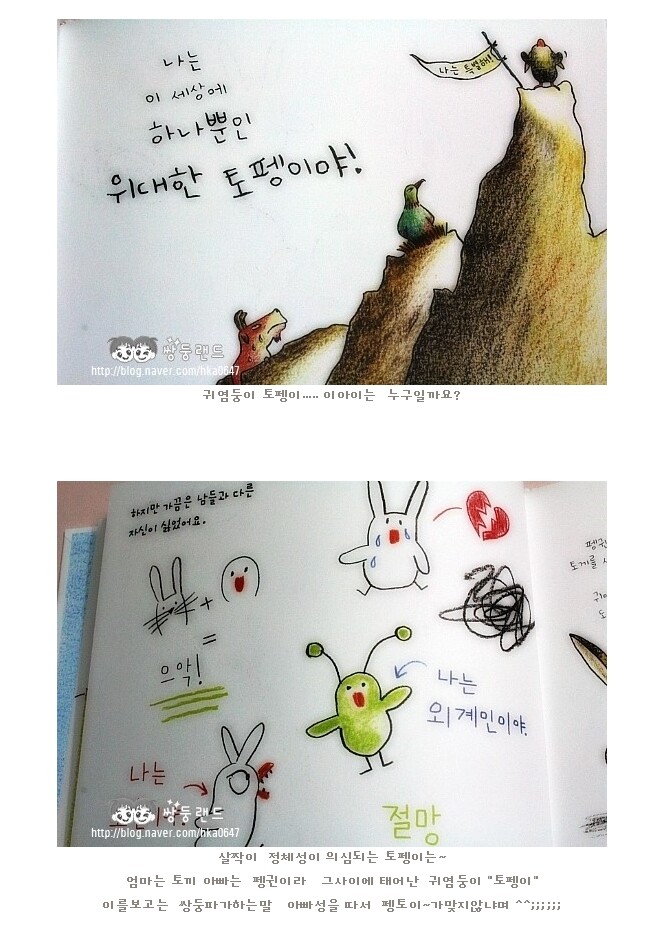 나는
이 세상에
하나뿐인
위대한 토펭이야!
나는 특별해!
쌍둥랜드
http://blog.naver.com/hka0647
귀염둥이 토펭이..... 이아이는 누구일까요?
하지만 가끔은 남들과 다른
자신이 싫었어요.
+
=
으악!
나는
외계인이야.
나는
절망
쌍둥랜드
http://blog.naver.com/hka0647
펭귄
토끼를
살짝이 정체성이 의심되는 토펭이는~
엄마는 토끼 아빠는 펭귄이라 그사이에 태어난 귀염둥이 "토펭이"
이를보고는 쌍둥파가하는말 아빠성을 따서 펭토이~가맞지않냐며 ^^;;;;;;